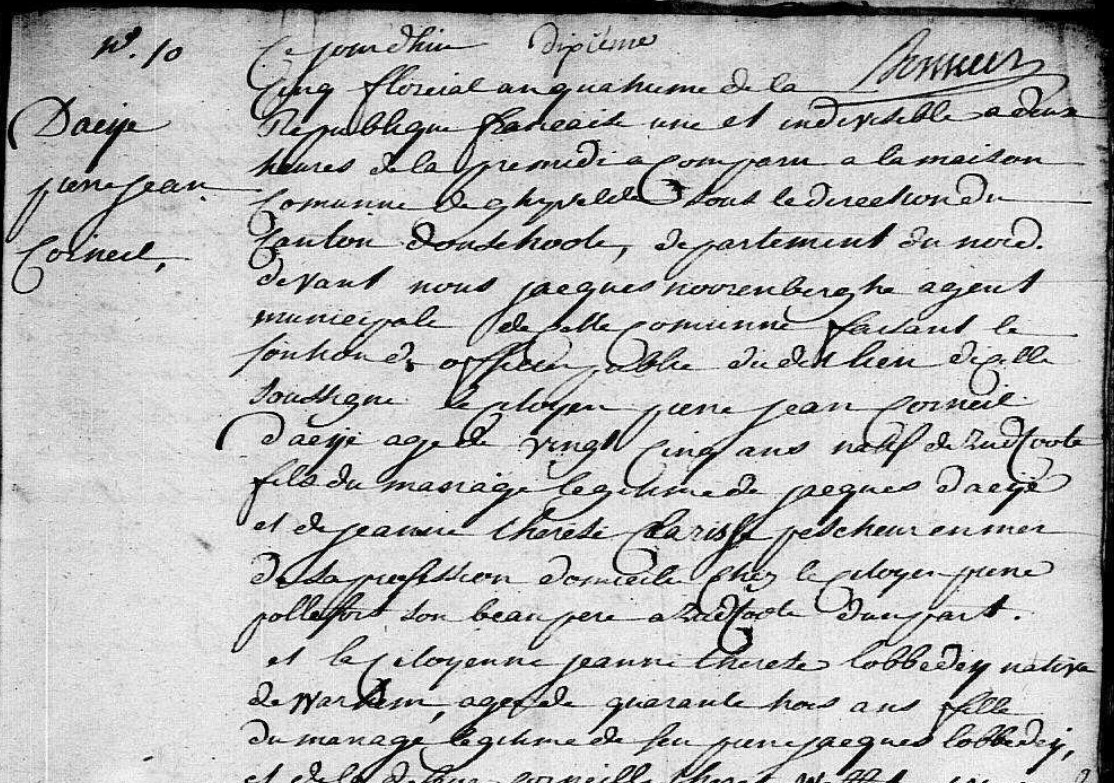 n°. 10
Daeÿe
pierre jean
Corneil,
Ce jourdhui Dixiême
Cinq floreial an quatrieme de la
Republique francaise une et indivisible a deux
heures de la premidi a Comparu a la maison
Comunne de ghyvelde sous le direction du
Canton dhondschoote, departement du nord.
devant nous jacques noorenberghe agent
municipale de cette Comunne faisant le
officier public dudit lieu
soussigne le citoyen pierre jean Corneil
daeÿe age de vingt Cinq ans natif de Zudcoote
fils du mariage legitime de jacques daeÿe
et de jeanne therese Clarisse pescheur en mer
de sa profession domicile Chez le citoyen pierre
pollefort son beau pere a Zudcoote dun part.
et la Citoyenne jeanne therese lobbedey native
de warhem, age de quarante trois ans fille
du mariage legitime de feu pierre jacques lobbedeÿ,
et de la corneille